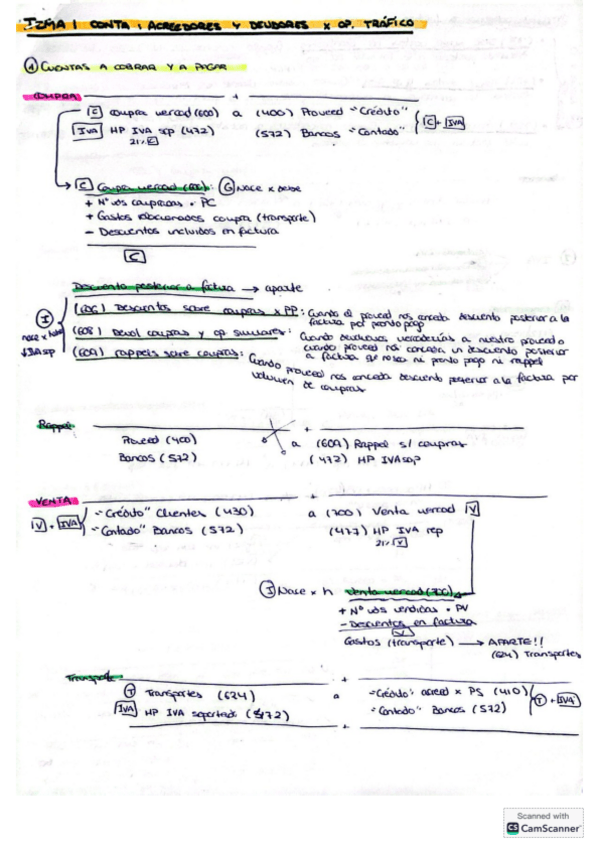 TEMA 1 CONTA : ACREEDORES Y DEUDORES X OP. TRÁFICO
① CUENTAS A COBRAR Y A PAGAR
COMPRA
C compra mercad (600) a (400) Proveed "Crédito"
IVA HP IVA sop (472) (572) Bancos "Contado" C + IVA
21% C
C Compra mercad (600): G Nace x debe
+ Nº uds compradas • PC
+ Gastos relacionados compra (transporte)
- Descuentos incluidos en factura
C
Descuento posterior a factura → aparte
I nace x haber ↓ IVA sop
(606) Descuentos sobre compras x PP: Cuando el proveed nos conceda descuento posterior a la factura por pronto pago
(608) Devol compras y op similares: Cuando devolvamos mercaderías a nuestro proveed o cuando proveed nos conceda un descuento posterior a factura que no sea ni pronto pago ni rappel
(609) rappels sobre compras: Cuando proveed nos conceda descuento posterior a la factura por volumen de compras
Rappel
Proveed (400) a (609) Rappel s/ compras
Bancos (572) (472) HP IVA sop
VENTA
V + IVA "Crédito" Clientes (430) a (700) Venta mercad V
"Contado" Bancos (572) (477) HP IVA rep
21% V
I Nace x h Venta mercad (700)
+ Nº uds vendidas • PV
- Descuentos en factura
V
Gastos (transporte) → APARTE!!
(624) Transportes
Transporte
T Transportes (624) a "Crédito" acreed x PS (410)
IVA HP IVA soportado (472) "Contado" Bancos (572) T + IVA
Scanned with
CS CamScanner